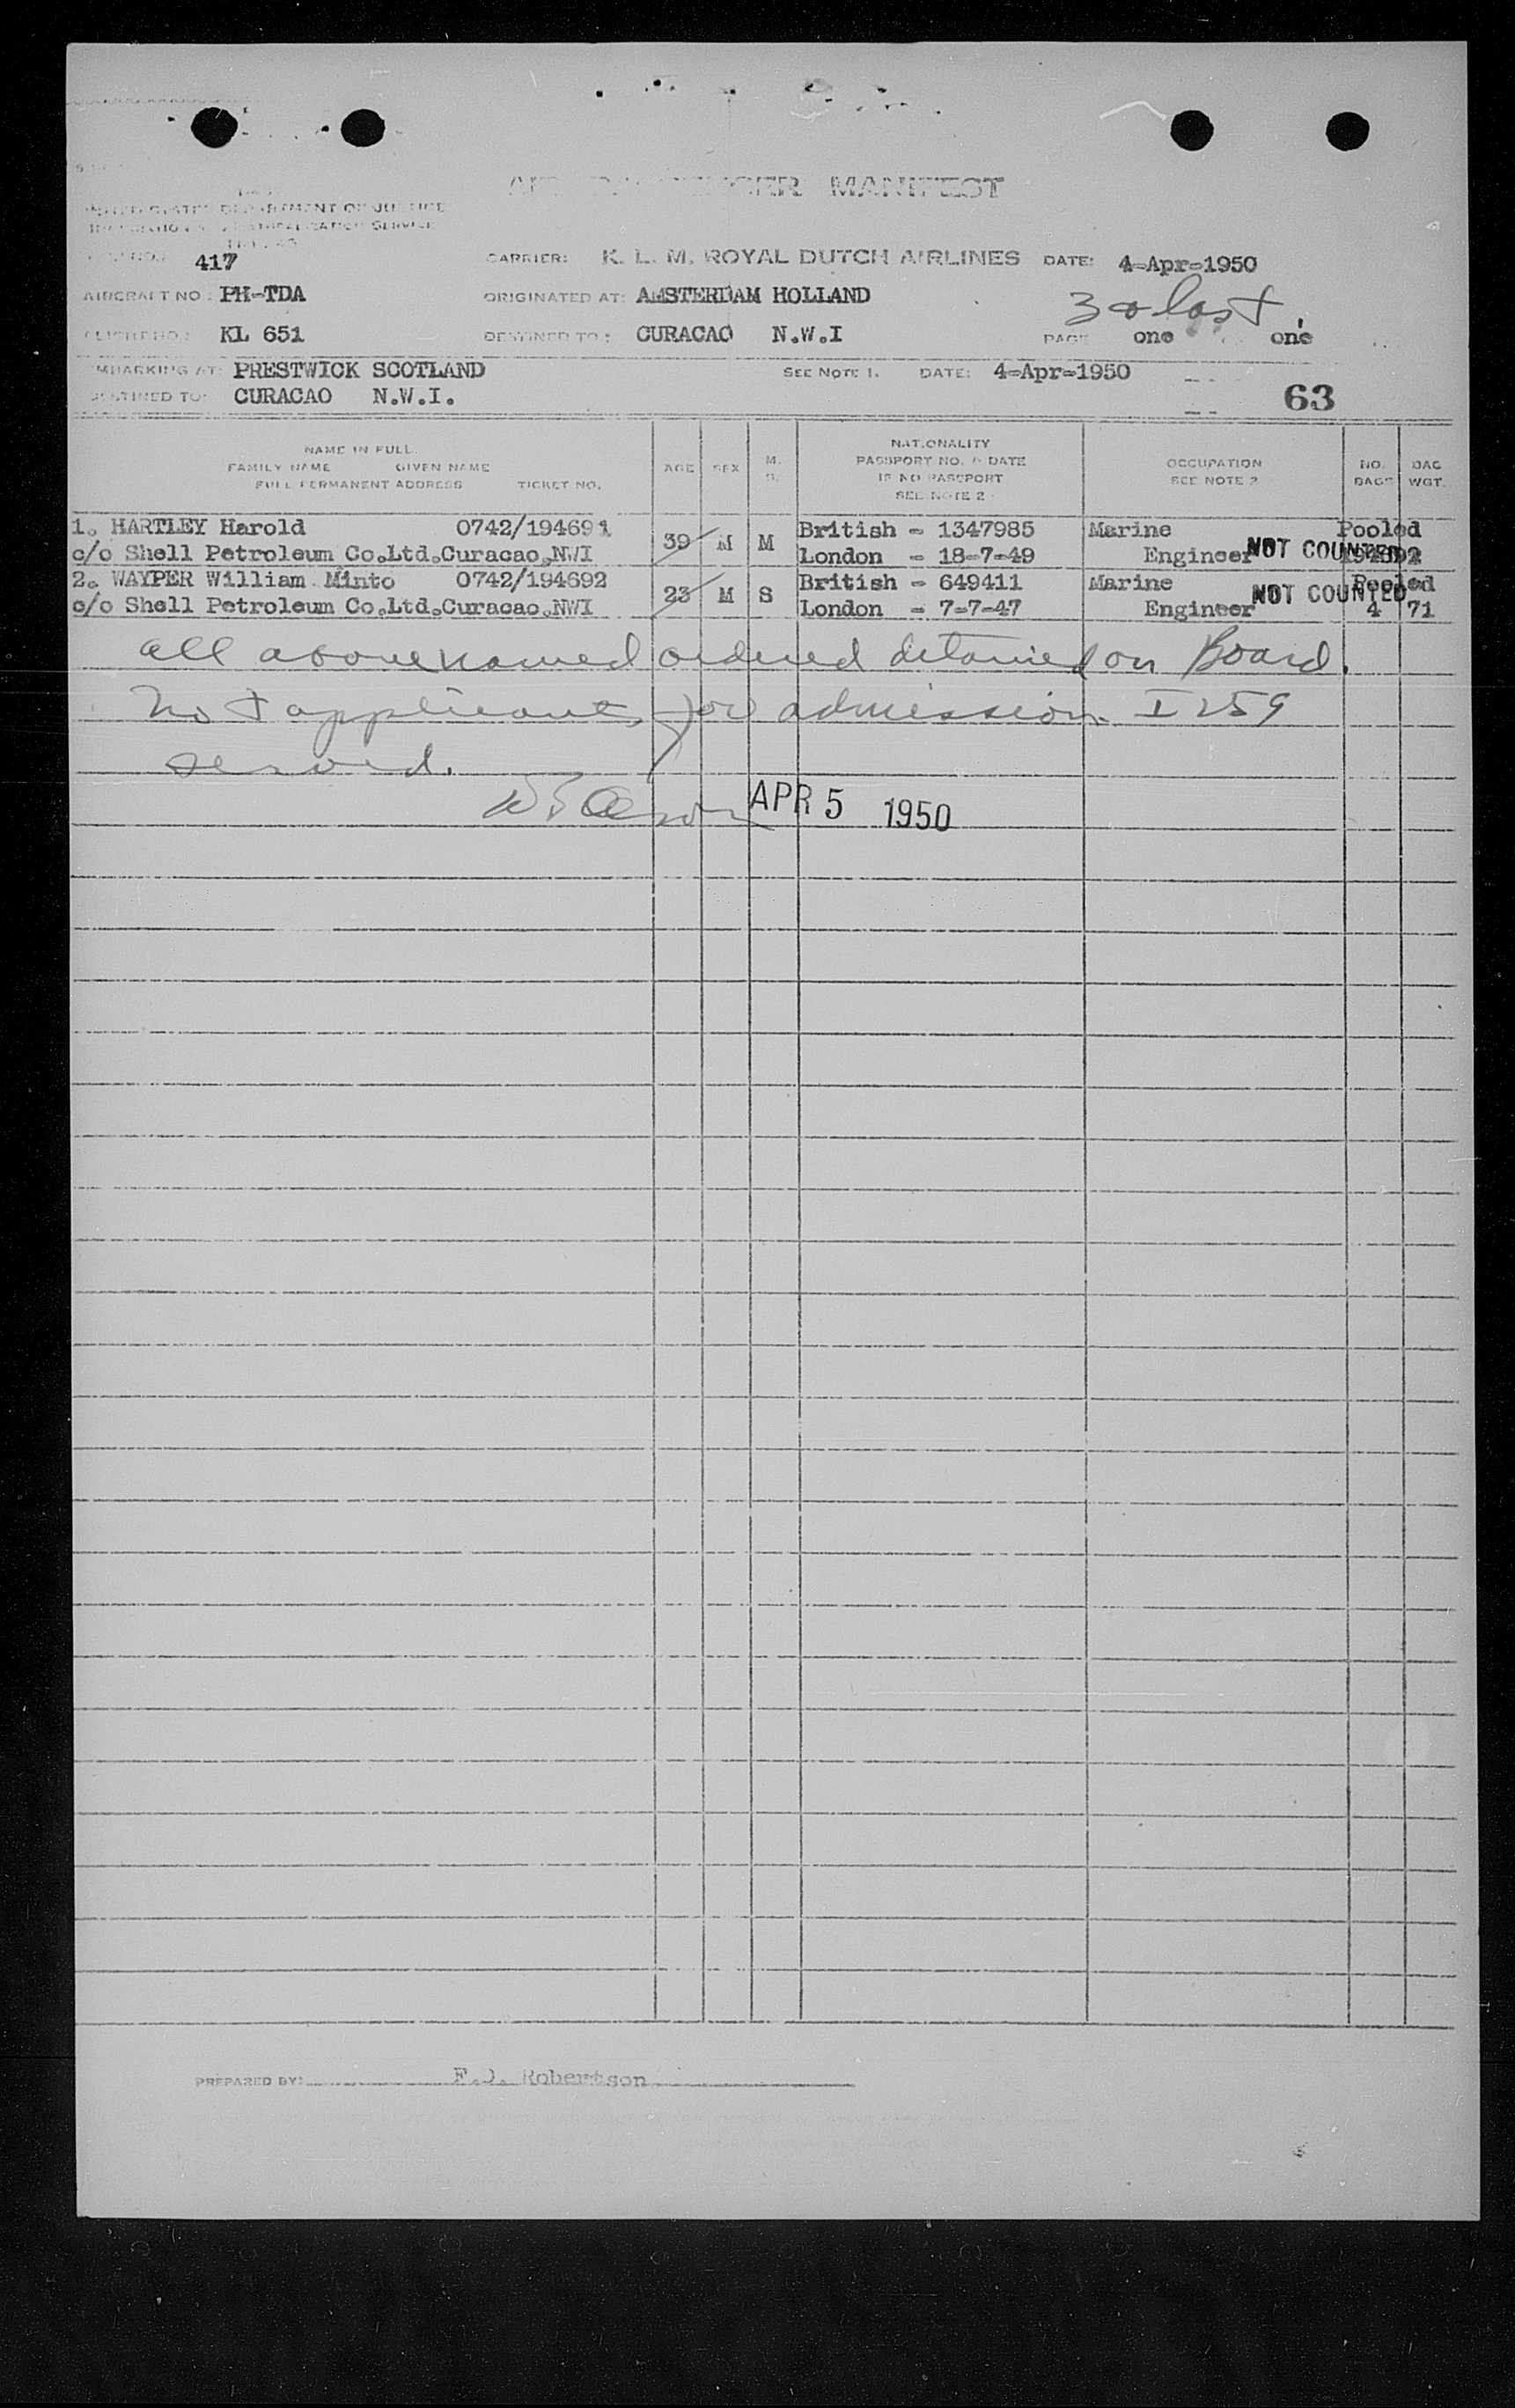 MANIFEST
UNITED STATES DEPARTMENT OF JUSTICE
SERVICE
417
CARRIER: K. L. M. ROYAL DUTCH AIRLINES DATE: 4-Apr-1950
AIRCRAFT NO: PH-TDA ORIGINATED AT: AMSTERDAM HOLLAND
3d & last
KL 651 DESTINED TO: CURACAO N.W.I PAGE one one
EMBARKING AT: PRESTWICK SCOTLAND SEE NOTE 1. DATE: 4-Apr-1950
DESTINED TO: CURACAO N.W.I. 63
NAME IN FULL
FAMILY NAME GIVEN NAME
FULL PERMANENT ADDRESS TICKET NO.
AGE
SEX
M.
S.
NATIONALITY
PASSPORT NO. & DATE
IF NO PASSPORT
SEE NOTE 2
OCCUPATION
SEE NOTE 2
NO.
BAGS
BAG
WGT.
1. HARTLEY Harold 0742/194691 39 M M British - 1347985 Marine Pooled
c/o Shell Petroleum Co.Ltd.Curacao,NWI London - 18-7-49 Engineer NOT COUNTED
2. WAYPER William Minto 0742/194692 23 M S British - 649411 Marine Pooled
c/o Shell Petroleum Co.Ltd.Curacao,NWI London - 7-7-47 Engineer NOT COUNTED 4 71
all above named ordered detained on Board.
Not applicants for admission. I 259
served.
APR 5 1950
PREPARED BY: Robertson